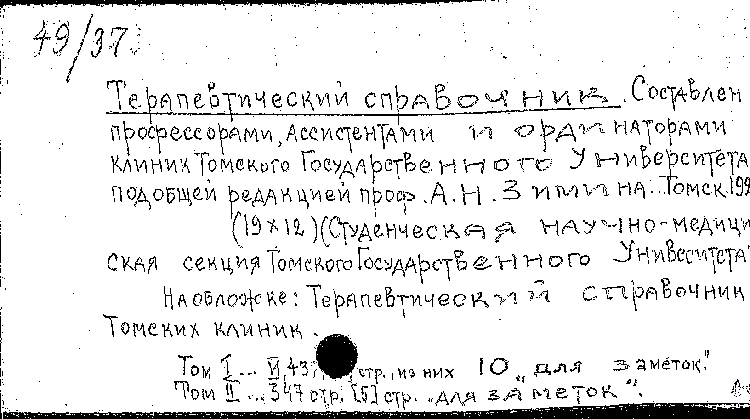 49/37
Терапевтический справочник. Составлен
профессорами, ассистентами и ординаторами
клиник Томского Государственного Университета
под общей редакцией проф. А.Н. Зимина. Томск
(19x12) (Студенческая научно-медици
ская секция Томского Государственного Университета
На обложке: Терапевтический справочник
Томских клиник.
Том I ... стр., из них 10 „для заметок".
Том II ... 347 стр. [5] стр. „для заметок".